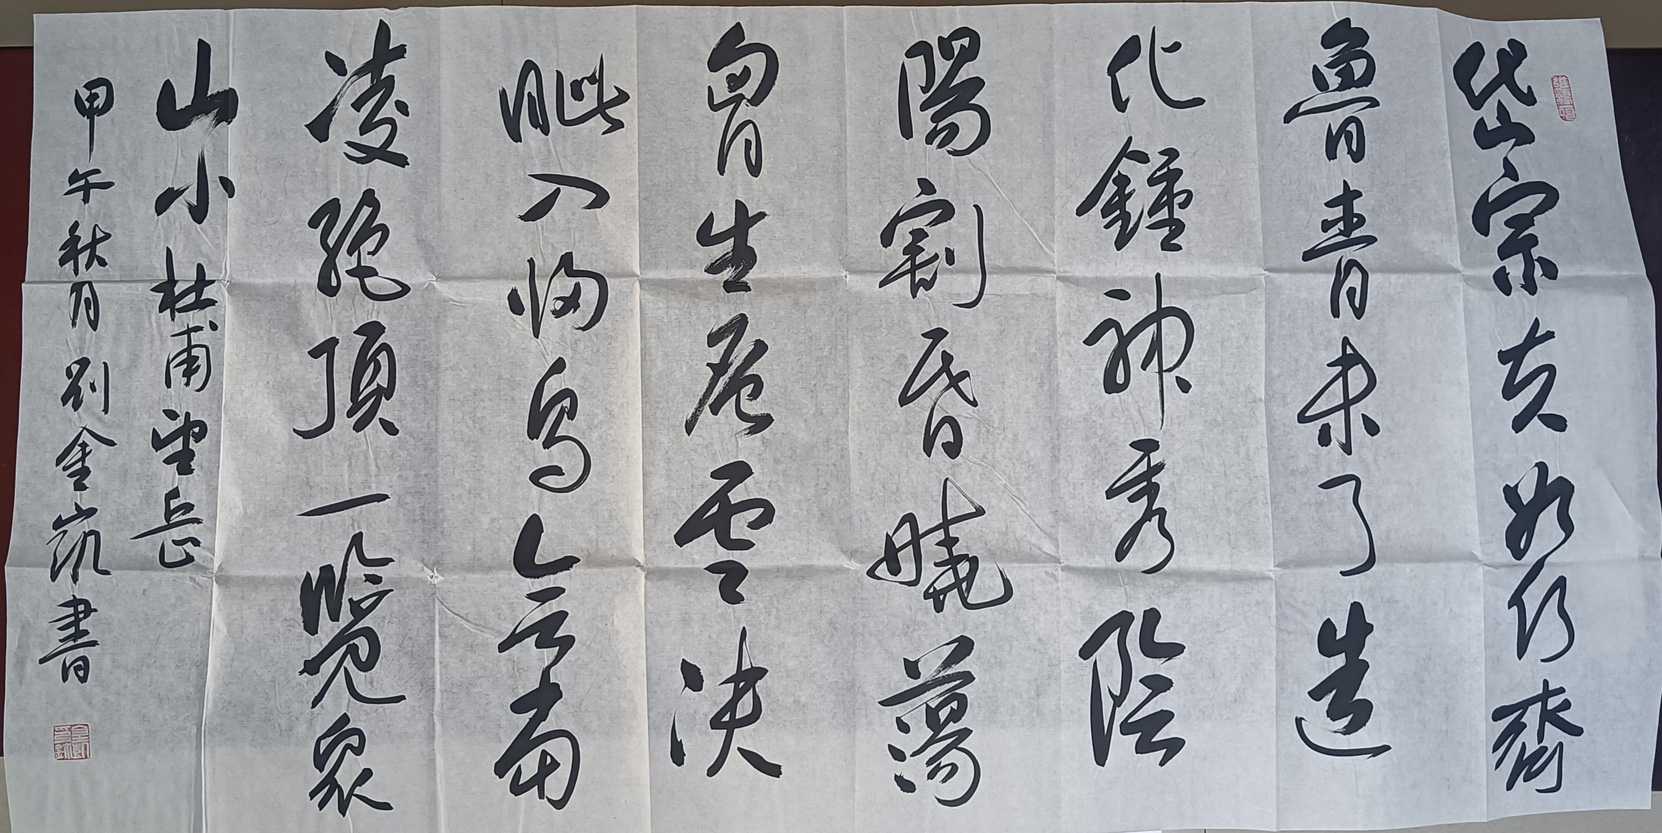 岱宗夫如何齊
魯青未了造
化鍾神秀陰
陽割昏曉蕩
胷生層雲決
眦入歸鳥會當
凌絕頂一覽衆
山小 杜甫望岳
甲午秋月 劉金凱書